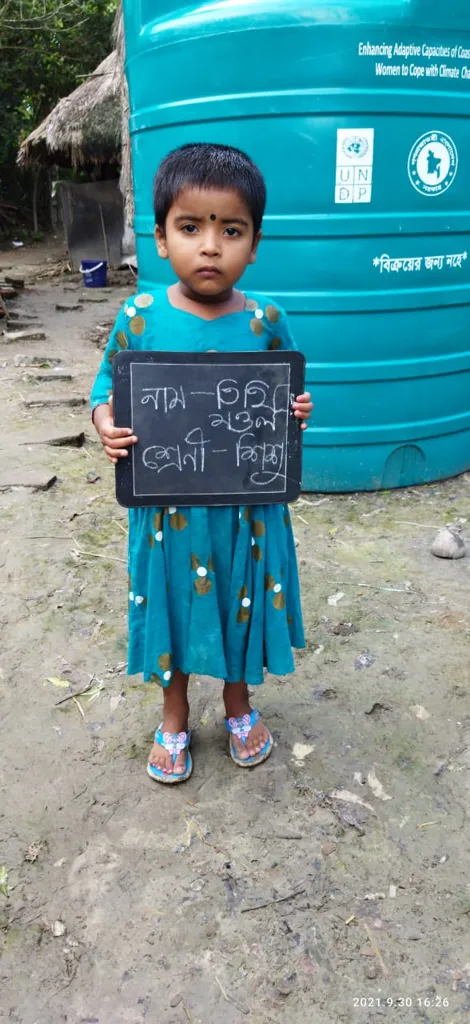 Enhancing Adaptive Capacities of Coas
Women to Cope with Climate Cha
U N
D P
*বিক্রয়ের জন্য নহে*
নাম - তিথি
মণ্ডল
শ্রেনী - শিশু
2021.9.30 16:26